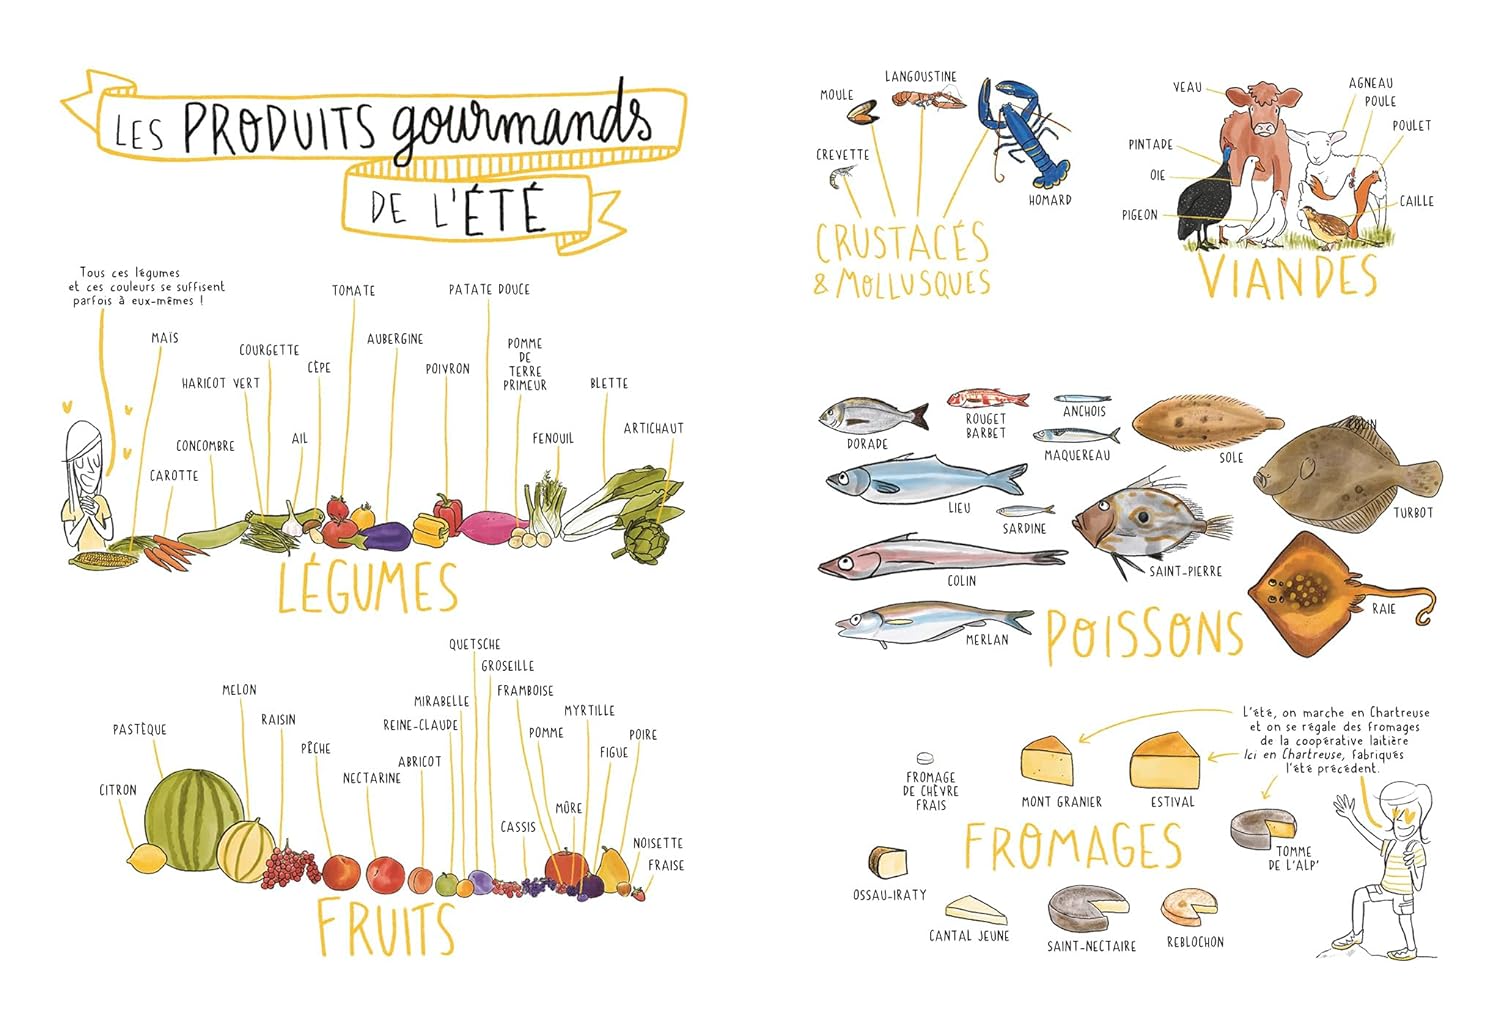 LES PRODUITS gourmands
DE L'ÉTÉ
Tous ces légumes
et ces couleurs se suffisent
parfois à eux-mêmes !
MAÏS
CAROTTE
CONCOMBRE
HARICOT VERT
COURGETTE
AIL
CÈPE
TOMATE
AUBERGINE
POIVRON
PATATE DOUCE
POMME
DE
TERRE
PRIMEUR
FENOUIL
BLETTE
ARTICHAUT
LÉGUMES
CITRON
PASTÈQUE
MELON
RAISIN
PÊCHE
NECTARINE
ABRICOT
REINE-CLAUDE
MIRABELLE
QUETSCHE
GROSEILLE
CASSIS
FRAMBOISE
POMME
MÛRE
MYRTILLE
FIGUE
POIRE
NOISETTE
FRAISE
FRUITS
CREVETTE
MOULE
LANGOUSTINE
HOMARD
CRUSTACÉS
& MOLLUSQUES
VEAU
PINTADE
OIE
PIGEON
AGNEAU
POULE
POULET
CAILLE
VIANDES
DORADE
ROUGET
BARBET
ANCHOIS
MAQUEREAU
SOLE
COLIN
TURBOT
LIEU
SARDINE
SAINT-PIERRE
COLIN
MERLAN
RAIE
POISSONS
L'été, on marche en Chartreuse
et on se régale des fromages
de la coopérative laitière
Ici en Chartreuse, fabriqués
l'été précédent.
FROMAGE
DE CHÈVRE
FRAIS
MONT GRANIER
ESTIVAL
TOMME
DE L'ALP'
FROMAGES
OSSAU-IRATY
CANTAL JEUNE
SAINT-NECTAIRE
REBLOCHON